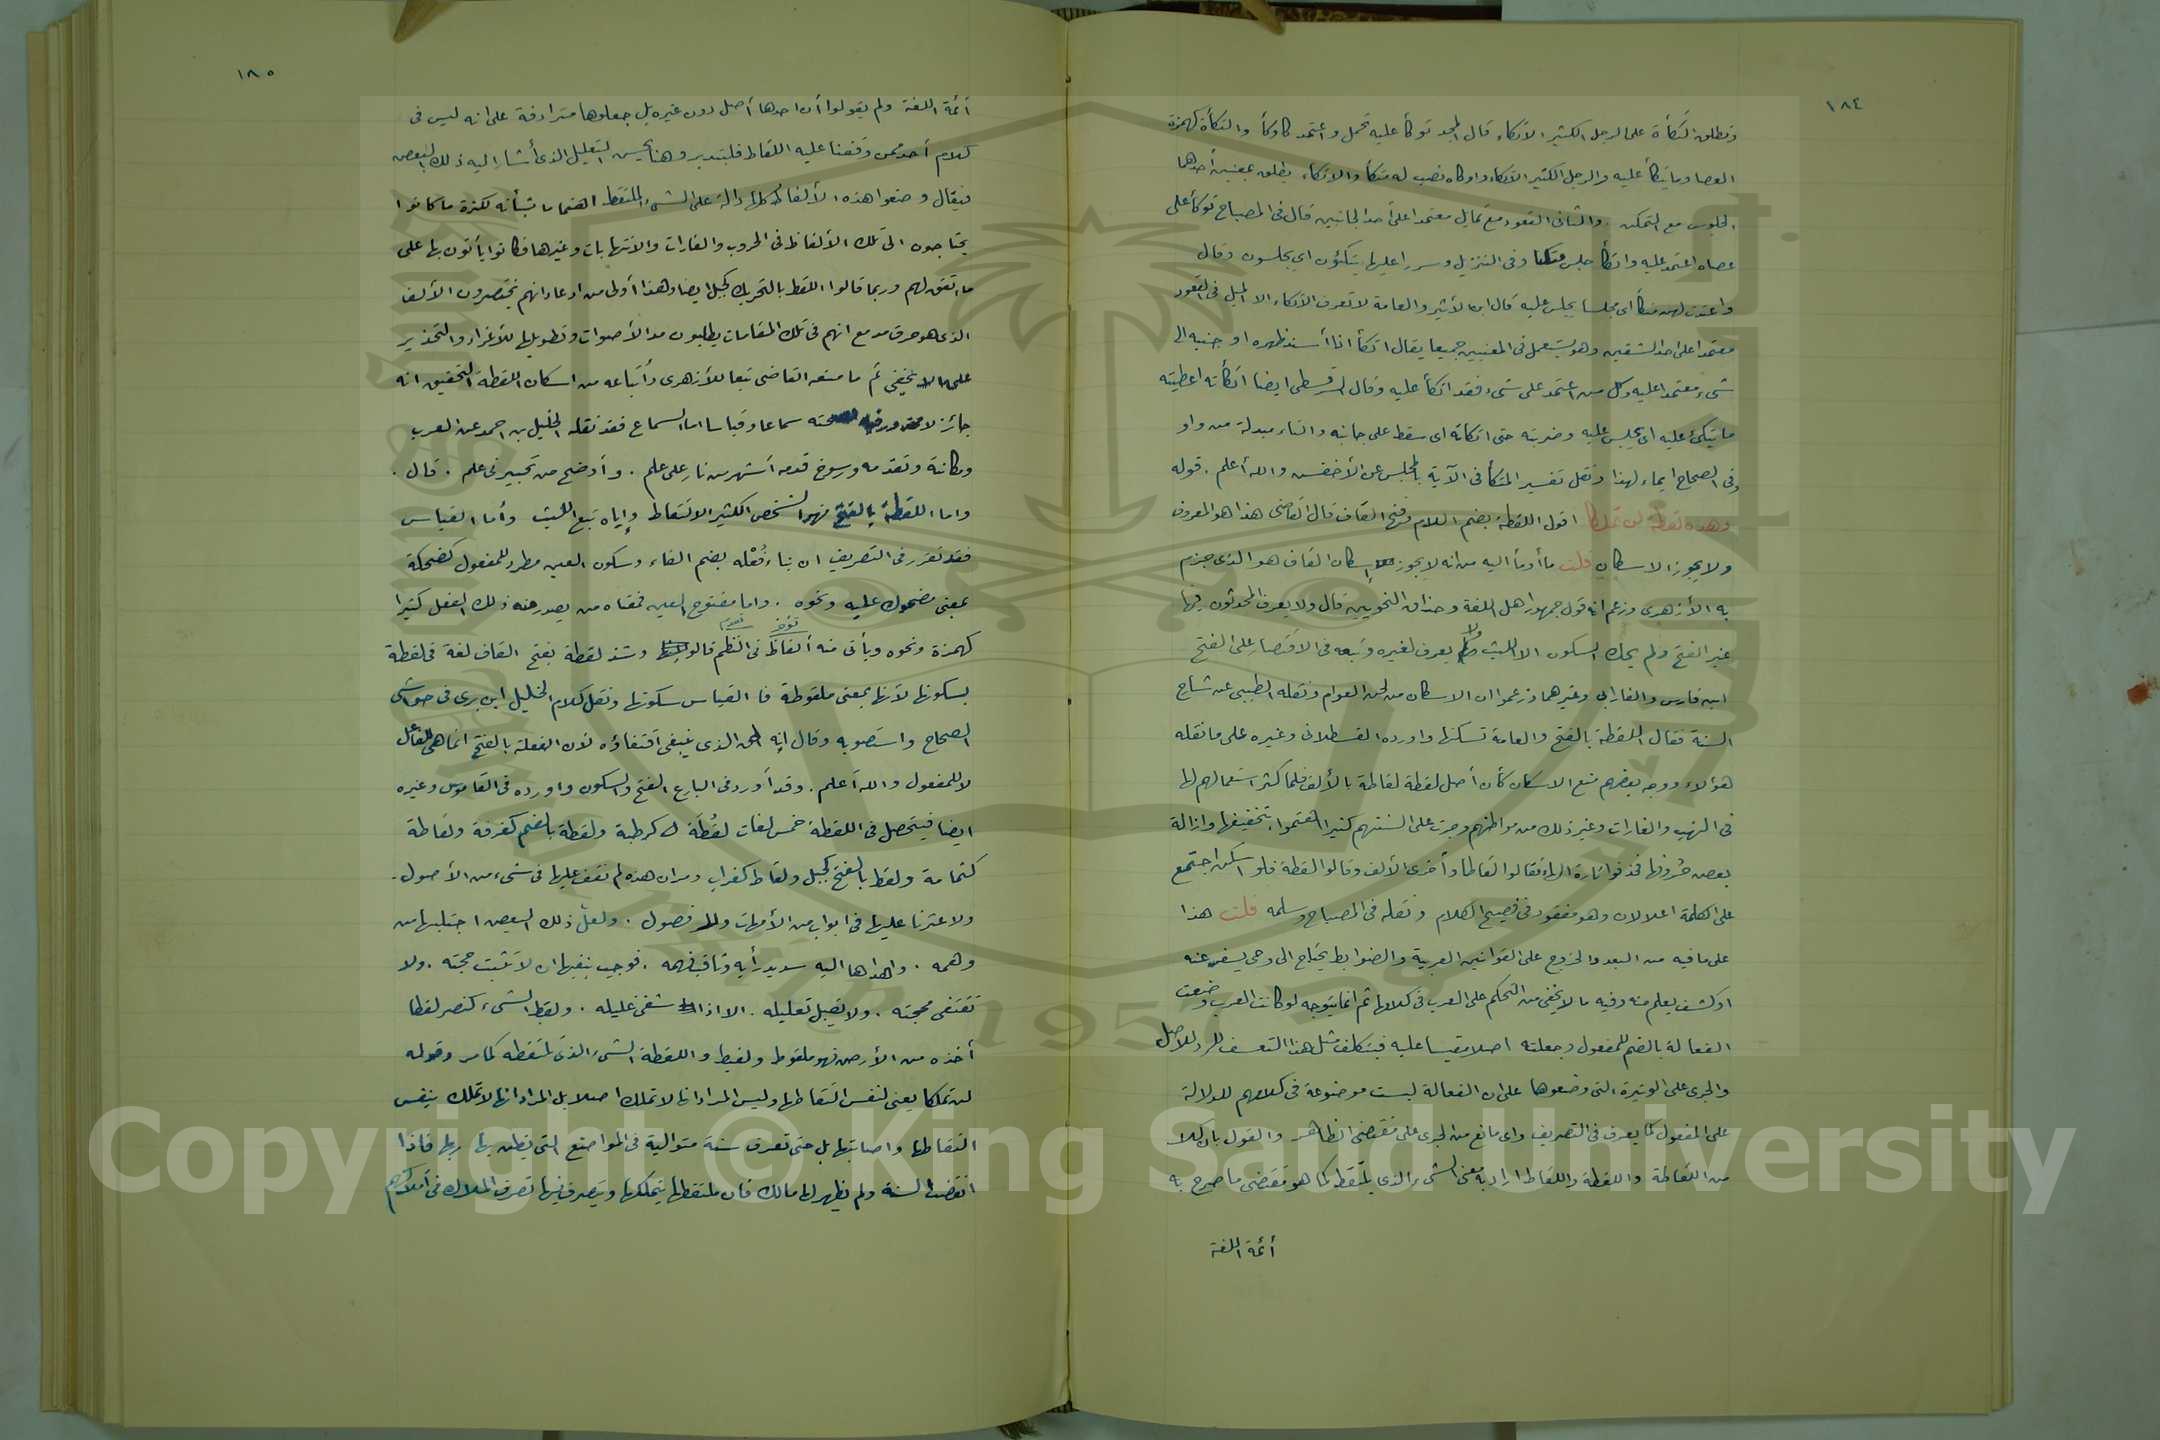 ١٨٤
وتطلق التكأة على الرجل الكثير الاتكاء قال المجد توكأ عليه تحمل واعتمد كاوكأ والتكأة كهمزة
العصا وما يتكأ عليه والرجل الكثير الاتكاء واوكاه نصب له متكأ والاتكاء يطلق بمعنيين أحدهما
الجلوس مع التمكن والثانى القعود مع تمايل معتمدا على أحد الجانبين قال فى المصباح توكأ على
عصاه اعتمد عليه واتكأ جلس متكئا وفى التنزيل وسررا عليها يتكئون اى يجلسون وقال
واعتدت لهن متكأ اى مجلسا يجلس عليه قال ابن الأثير والعامة لا تعرف الاتكاء الا الميل فى القعود
معتمدا على احد الشقين وهو يستعمل فى المعنيين جميعا يقال اتكأ اذا أسند ظهره او جنبه الى
شىء معتمدا عليه وكل من اعتمد على شىء فقد اتكأ عليه وقال السرقسطى ايضا اتكأته اعطيته
ما يتكئ عليه اى يجلس عليه وضربته حتى اتكأته اى سقط على جانبه والتاء مبدلة من واو
وفى الصحاح ايماء لهذا ونقل تفسير المتكأ فى الآية بالمجلس عن الأخفش والله أعلم . قوله
وهذه لقطة لن تملكا اقول اللقطة بضم اللام وفتح القاف قال القاضى هذا هو المعروف
ولا يجوز الاسكان قلت ما أومأ اليه من انه لا يجوز اسكان القاف هو الذى جزم
به الأزهرى وزعم انه قول جمهور اهل اللغة وحذاق النحويين قال ولا يعرف المحدثون فيها
غير الفتح ولم يحك السكون الا الليث ولا يعرف لغيره وتبعه فى الاقتصار على الفتح
ابن فارس والفارابى وغيرهما وزعموا ان الاسكان من لحن العوام ونقله الطيبى عن شارح
السنة فقال اللقطة بالفتح والعامة تسكنها واورده القسطلانى وغيره على ما نقله
هؤلاء ووجه بعضهم منع الاسكان كأن أصل لقطة لقاطة بالألف فلما كثر استعمالهم لها
فى النهب والغارات وغير ذلك من مواطنهم وجرت على السنتهم كثيرا اهتموا بتخفيفها وازالة
بعض حروفها فحذفوا تارة الهاء فقالوا لقاطا وأخرى الألف وقالوا لقطة فلو اسكن اجتمع
على الكلمة اعلالان وهو مفقود فى فصيح الكلام ونقله فى المصباح وسلمه قلت هذا
على ما فيه من البعد والخروج على القوانين العربية والضوابط يحتاج الى وحى يسفر عنه
او كشف يعلم منه وفيه ما لا يخفى من التحكم على العرب فى كلامها ثم انما يتوجه لو كانت العرب وضعت
الفعالة بالضم للمفعول وجعلته اصلا مقيسا عليه فيتكلف مثل هذا التعسف للرد للأصل
والجرى على الوتيرة التى وضعوها على ان الفعالة ليست موضوعة فى كلامهم للدلالة
على المفعول كما يعرف فى التصريف واى مانع من الجرى على مقتضى الظاهر والقول بأن كلا
من اللقاطة واللقطة واللقاط اراد به معنى الشىء الذى يلتقط كما هو مقتضى ما صرح به
أئمة اللغة
١٨٥
أئمة اللغة ولم يقولوا أن احدها أصل دون غيره بل جعلوها مترادفة على انه ليس فى
كلام أحد ممن وقفنا عليه اللقاط فليتدبر وهنا يحسن التعليل الذى أشار اليه ذلك البعض
فيقال وضعوا هذه الألفاظ كلها دالة على الشىء الملتقط اهتماما بشأنه لكثرة ما كانوا
يحتاجون الى تلك الألفاظ فى الحروب والغارات والانتهابات وغيرها فكانوا يأتون بها على
ما اتفق لهم وربما قالوا اللقط بالتحريك كجبل ايضا وهذا أولى من ادعاء انهم يختصرون الألف
الذى هو حرف مد مع انهم فى تلك المقامات يطلبون مد الأصوات وتطويلها للأغراء والتحذير
على ما لا يخفى ثم ما منعه القاضى تبعا للأزهرى وأتباعه من اسكان اللقطة التحقيق انه
جائز لا صحته سماعا وقياسا اما السماع فقد نقله الخليل بن احمد عن العرب
ومكانته وتقدمه ورسوخ قدمه أشهر من نار على علم . وأوضح من تحبير فى علم . قال .
واما اللقطة بالفتح فهو الشخص الكثير الالتقاط وإياه تبع الليث وأما القياس
فقد تقرر فى التصريف ان بناء فُعْله بضم الفاء وسكون العين مطرد للمفعول كضحكة
بمعنى مضحوك عليه ونحوه . واما مفتوح العين فمعناه من يصدر عنه ذلك الفعل كثيرا
كهمزة ونحوه ويأتى منه ألفاظ فى النظم قالوا وشذ لقطة بفتح القاف لغة فى لقطة
بسكونها لأنها بمعنى ملقوطة فالقياس سكونها ونقل كلام الخليل ابن برى فى حواشى
الصحاح واستصوبه وقال إنه الذى ينبغى اقتفاؤه لأن الفعلة بالفتح انما هى للفاعل
لا للمفعول والله أعلم . وقد أورد فى البارع الفتح والسكون واورده فى القاموس وغيره
ايضا فيتحصل فى اللقطة خمس لغات لُقَطَة كرطبة ولقطة بالضم كغرفة ولقاطة
كثمامة ولقط بالفتح كجبل ولقاط كغراب ومر ان هذه لم نقف عليها فى شىء من الأصول .
ولا عثرنا عليها فى ابواب من الأمهات ولا فصول . ولعل ذلك البعض اجتلبها من
وهمه . واهداها اليه سديد رأيه وثاقب فهمه . فوجب بنفيها ان لا تثبت حجته . ولا
تقتفى محجته . ولا يقبل تعليله . الا اذا شفى غليله . ولقط الشىء كنصر لقطا
أخذه من الأرض فهو ملقوط ولقيط واللقطة الشىء الذى تلتقطه كما مر وقوله
لن تملكا يعنى لنفس التقاطها وليس المراد انها لا تملك اصلا بل المراد انها لا تملك بنفس
التقاطها واصابتها بل حتى تعرف سنة متوالية فى المواضع التى يظن بها ربها فاذا
انقضت السنة ولم يظهر لها مالك فان ملتقطها يتملكها ويتصرف فيها تصرف الملاك فى أملاكهم
Copyright © King Saud University
1957